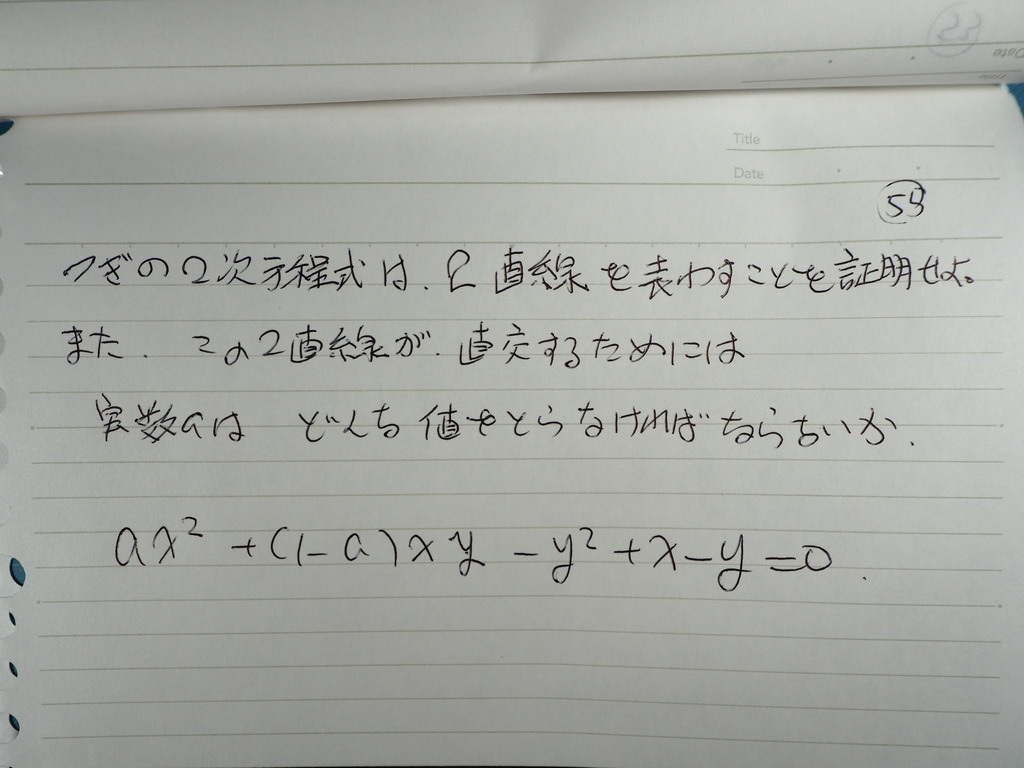 Title
Date
59
つぎの2次方程式は、2直線を表わすことを証明せよ。
また、この2直線が、直交するためには
実数aは どんな値をとらなければならないか、
ax²+(1-a)xy-y²+x-y=0.